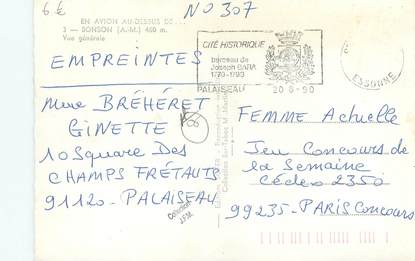 6 €
N0 307
EN AVION AU-DESSUS DE...
3 — BONSON (A.-M.) 460 m.
Vue générale
EMPREINTES
CITÉ HISTORIQUE
berceau de
Joseph BARA
1779-1793
PALAISEAU
20-6-90
ESSONNE
Mme BRÉHÉRET
GINETTE
10 Square Des
CHAMPS FRÉTAUTS
91120 - PALAISEAU
06
Collection
J.F.M.
FEMME Actuelle
Jeu Concours de
la Semaine
Cédex 2350
99235 - PARIS Concours